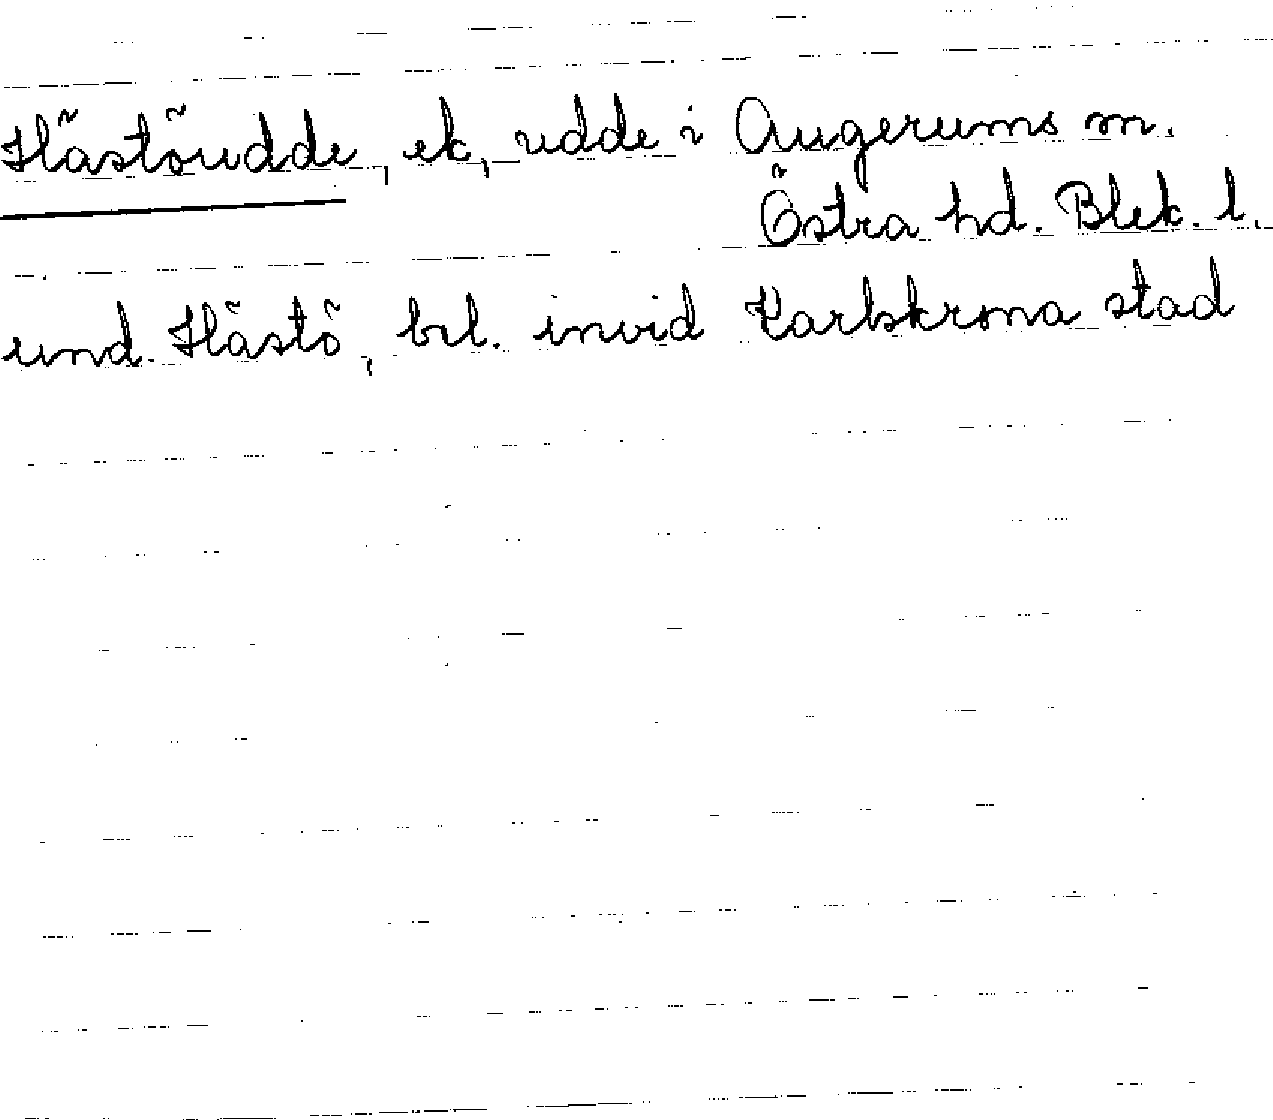 Hästöudde, ek, udde i Augerums sn.
Östra hd. Blek. l.
und. Hästö, bil. invid Karlskrona stad